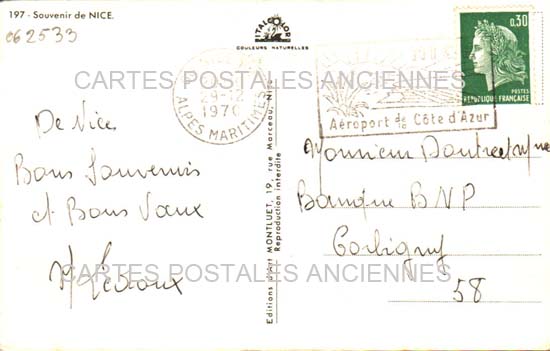 197 - Souvenir de NICE.
c6 2533
ITALCOLOR
COULEURS NATURELLES
0,30
POSTES
REPUBLIQUE FRANÇAISE
1970
ALPES MARITIMES
Aéroport de la Côte d'Azur
CARTES POSTALES ANCIENNES
De Nice
Bons Souvenirs
et Bons Vœux
Editions d'Art MONTLUET, 19, rue Marceau, Nice
Reproduction interdite
Monsieur
Banque BNP
Corbigny
58
CARTES POSTALES ANCIENNES